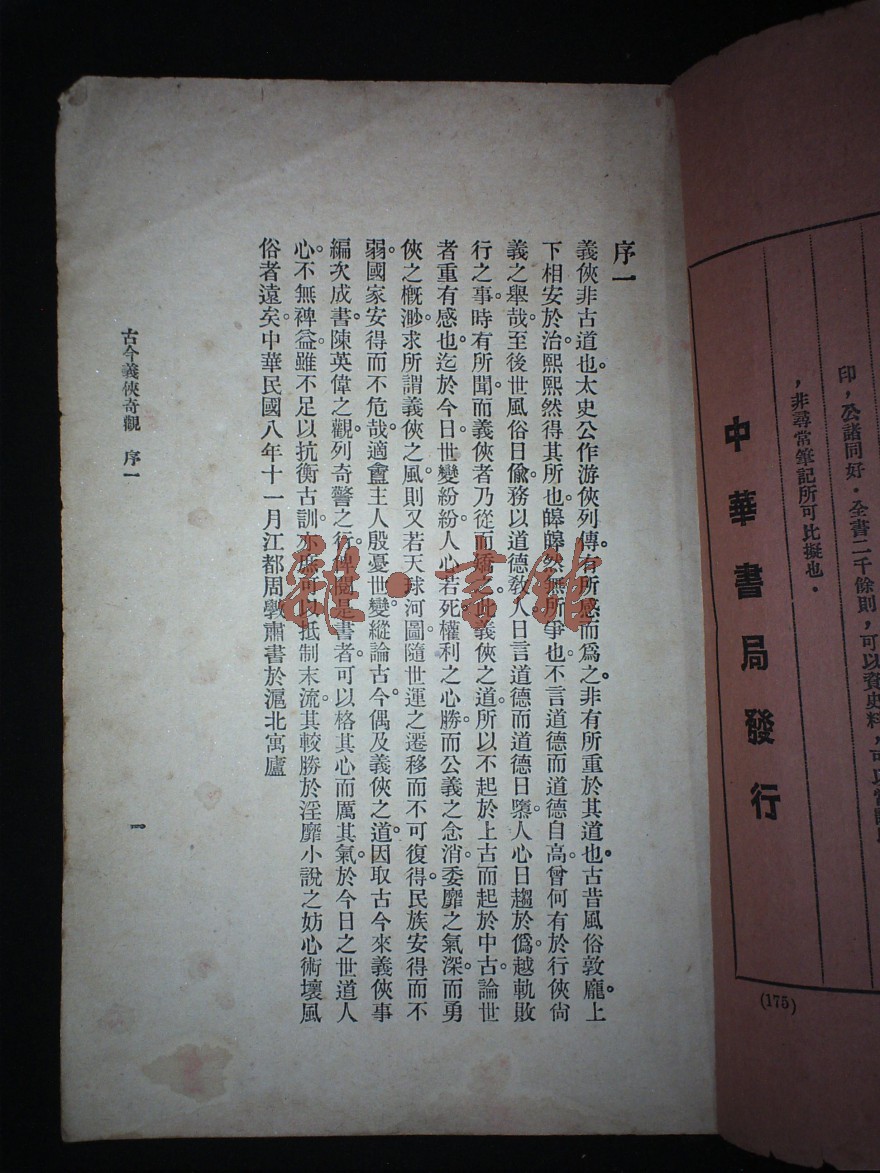 印，公諸同好．全書二千餘則，可以資史料，可以
，非尋常筆記所可比擬也．
中華書局發行
(175)
序一
義俠非古道也。太史公作游俠列傳。有所感而爲之。非有所重於其道也。古昔風俗敦龐。上
下相安於治。熙熙然得其所也。皞皞然無所爭也。不言道德而道德自高。曾何有於行俠尙
義之舉哉。至後世風俗日偸。務以道德敎人。日言道德而道德日墮。人心日趨於僞。越軌敗
行之事。時有所聞。而義俠者乃從而矯之。此義俠之道。所以不起於上古而起於中古。論世
者重有感也。迄於今日。世變紛紛。人心若死。權利之心勝。而公義之念消。委靡之氣深。而勇
俠之槪渺。求所謂義俠之風。則又若天球河圖。隨世運之遷移而不可復得。民族安得而不
弱。國家安得而不危哉。適盦主人殷憂世變。縱論古今。偶及義俠之道。因取古今來義俠事
編次成書。陳英偉之觀。列奇警之行。俾閱是書者。可以格其心而厲其氣。於今日之世道人
心。不無裨益。雖不足以抗衡古訓。亦庶可以抵制末流。其較勝於淫靡小說之妨心術壞風
俗者遠矣。中華民國八年十一月江都周斆肅書於滬北寓廬
古今義俠奇觀　序一
一